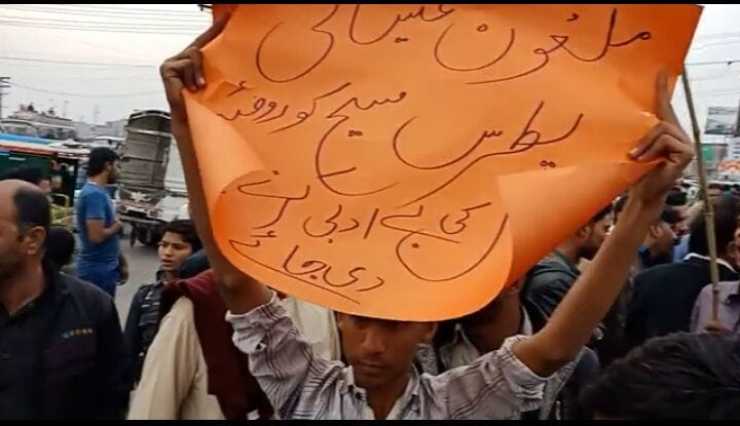 ملعون عیسائی
پطرس مسیح کو روضہ
کی بے ادبی کرنے
دی جائے